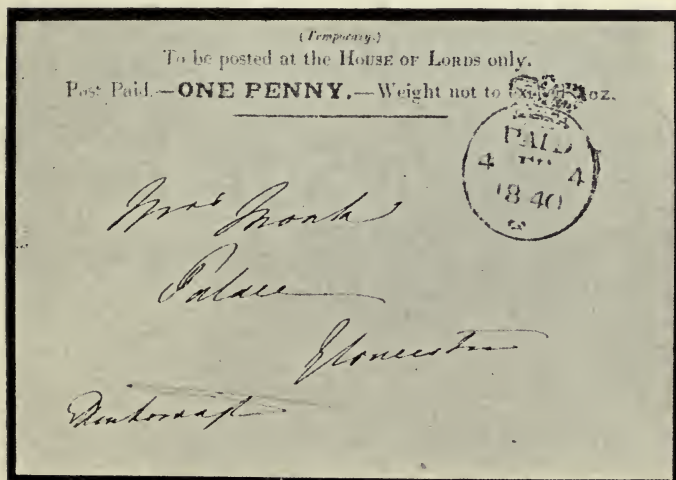 (Temporary.)
To be posted at the HOUSE OF LORDS only.
Post Paid.—ONE PENNY.—Weight not to oz.
PAID
4 4
1840
Mrs Monk
Palace
Gloucester